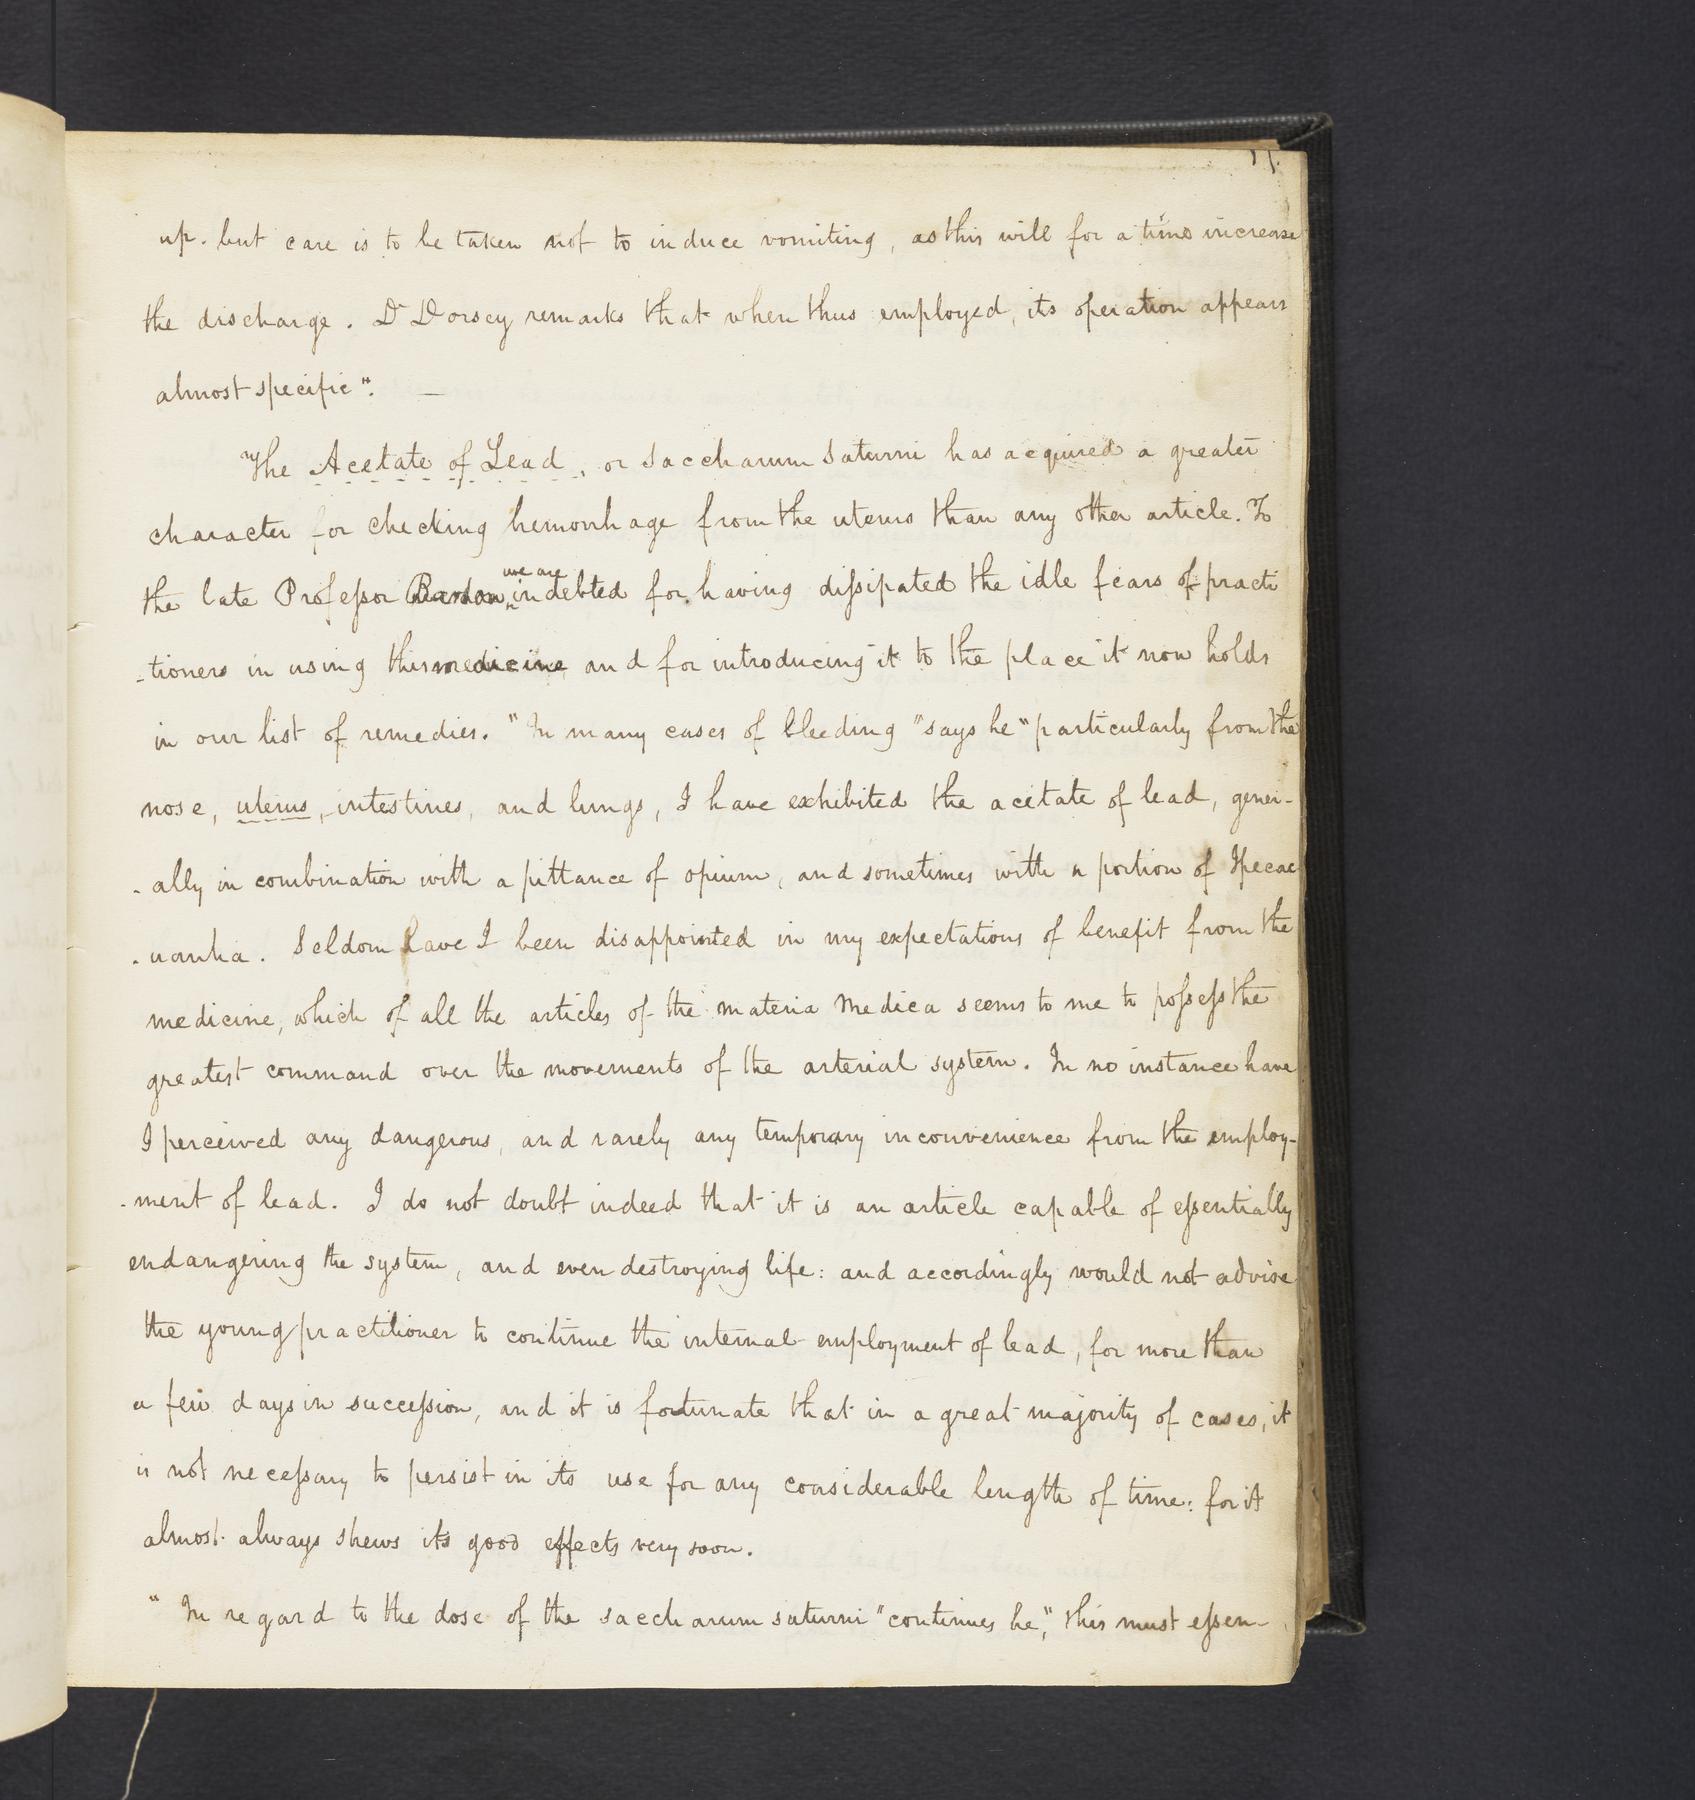 up. but care is to be taken not to induce vomiting, as this will for a time increase
the discharge. Dr Dorsey remarks that when thus employed, its operation appears
almost specific". —
The Acetate of Lead, or Saccharum Saturni has acquired a greater
character for checking hemorrhage from the uterus than any other article. To
the late Professor Barton we are indebted for having dissipated the idle fears of practi
-tioners in using this medicine and for introducing it to the place it now holds
in our list of remedies. "In many cases of bleeding "says he "particularly from the
nose, uterus, intestines, and lungs, I have exhibited the acetate of lead, gener-
-ally in combination with a pittance of opium, and sometimes with a portion of Ipecac
-uanha. Seldom have I been disappointed in my expectations of benefit from the
medicine, which of all the articles of the materia medica seems to me to possess the
greatest command over the movements of the arterial system. In no instance have
I perceived any dangerous, and rarely any temporary inconvenience from the employ-
-ment of lead. I do not doubt indeed that it is an article capable of essentially
endangering the system, and even destroying life: and accordingly would not advise
the young practitioner to continue the internal employment of lead, for more than
a few days in succession, and it is fortunate that in a great majority of cases, it
is not necessary to persist in its use for any considerable length of time: for it
almost always shews its good effects very soon.
"In regard to the dose of the saccharum saturni "continues he," this must essen-